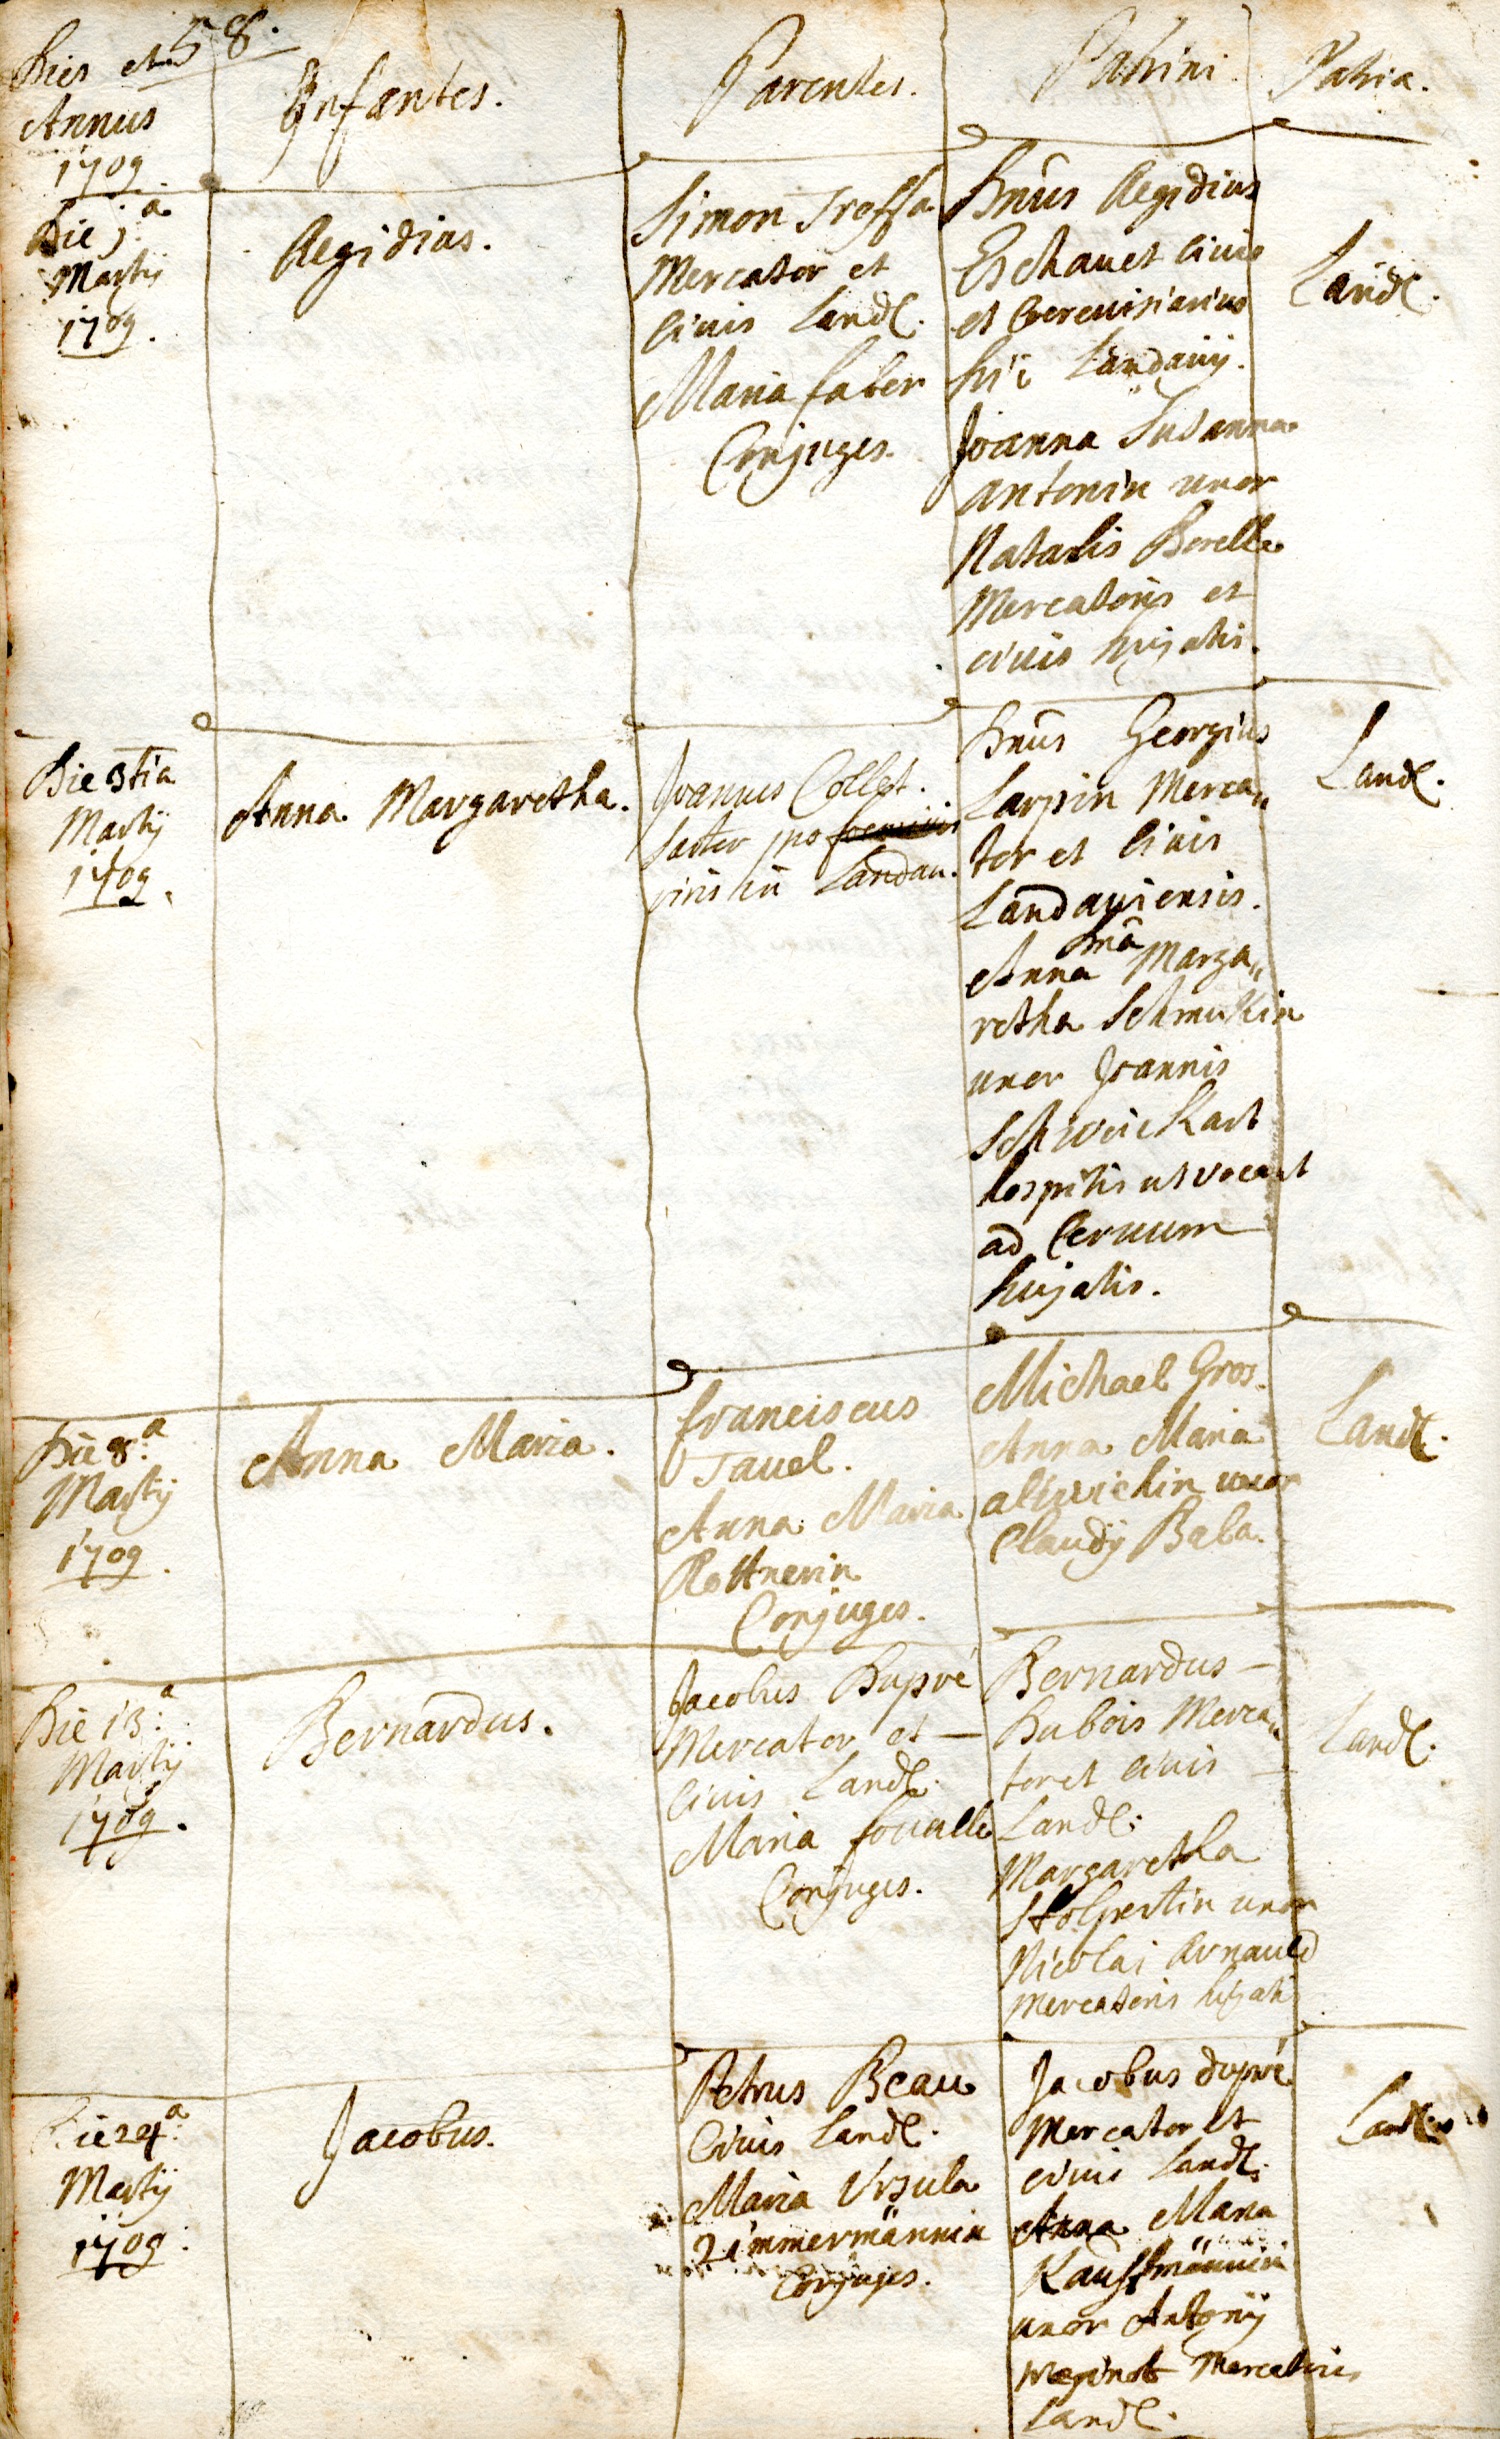 58.
Dies et
Annus
1709
Infantes.
Parentes.
Patrini
Patria.
Die j.a
Martij
1709.
Aegidius.
Simon Treffa
Mercator et
civis Landl.
Maria faber
Conjuges.
Dnus Aegidius
Eschauet civis
et Cerevisiarius
hic Landavij.
Joanna Susanna
antonin uxor
Natalis Berelle
Mercatoris et
civis hujatis.
Landl.
Die 3tia
Martij
1709.
Anna Margaretha.
Joannes Collet.
sartor pro
viris in Landau.
Dnus Georgius
Larpin Merca„
tor et civis
Landaviensis.
Dna
Anna Marga„
retha Schmukin
uxor Joannis
Schweickart
hospitis ut vocant
ad Cervum
hujatis.
Landl.
Die 8.a
Martij
1709.
Anna Maria.
franciscus
Tauel.
Anna Maria
Rottnerin
Conjuges.
Michael Gros.
Anna Maria
altwichin uxor
Claudij Bala.
Landl.
Die 13.a
Martij
1709.
Bernardus.
Jacobus Dupré
Mercator et
civis Landl.
Maria fovelle
Conjuges.
Bernardus
Dubois Merca„
tor et civis
Landl:
Margaretha
Stolpertin uxor
Nicolai Arnauld
Mercatoris hujatis
Landl.
Die 24.a
Martij
1709.
Jacobus.
Petrus Beau
Civis Landl.
Maria Vrsula
Zimmermännin
Conjuges.
Jacobus dupré
Mercator et
civis Landl:
Anna Maria
Kauffmännin
uxor Antonij
Mercatoris
Landl.
Landl.